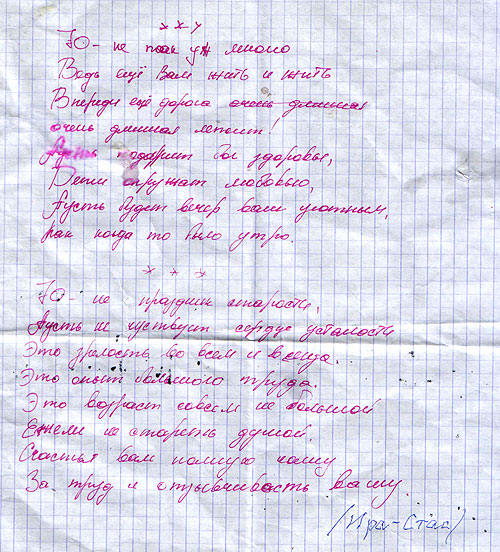 х х х
70 - не так уж много
Ведь ещё Вам жить и жить
Впереди ещё дорога очень длинная
очень длинная лежит!
Пусть подарит бог здоровье,
Дети окружат любовью,
Пусть будет вечер вам уютным,
Как когда то было утро.
х х х
70 - не праздник старости,
Пусть не чувствует сердце усталости
Это зрелость во всем и всегда.
Это опыт большого труда.
Это возраст совсем не большой
Ежели не стареть душой.
Счастья вам полную чашу
За труд и отзывчивость вашу.
(Ира-Стас)